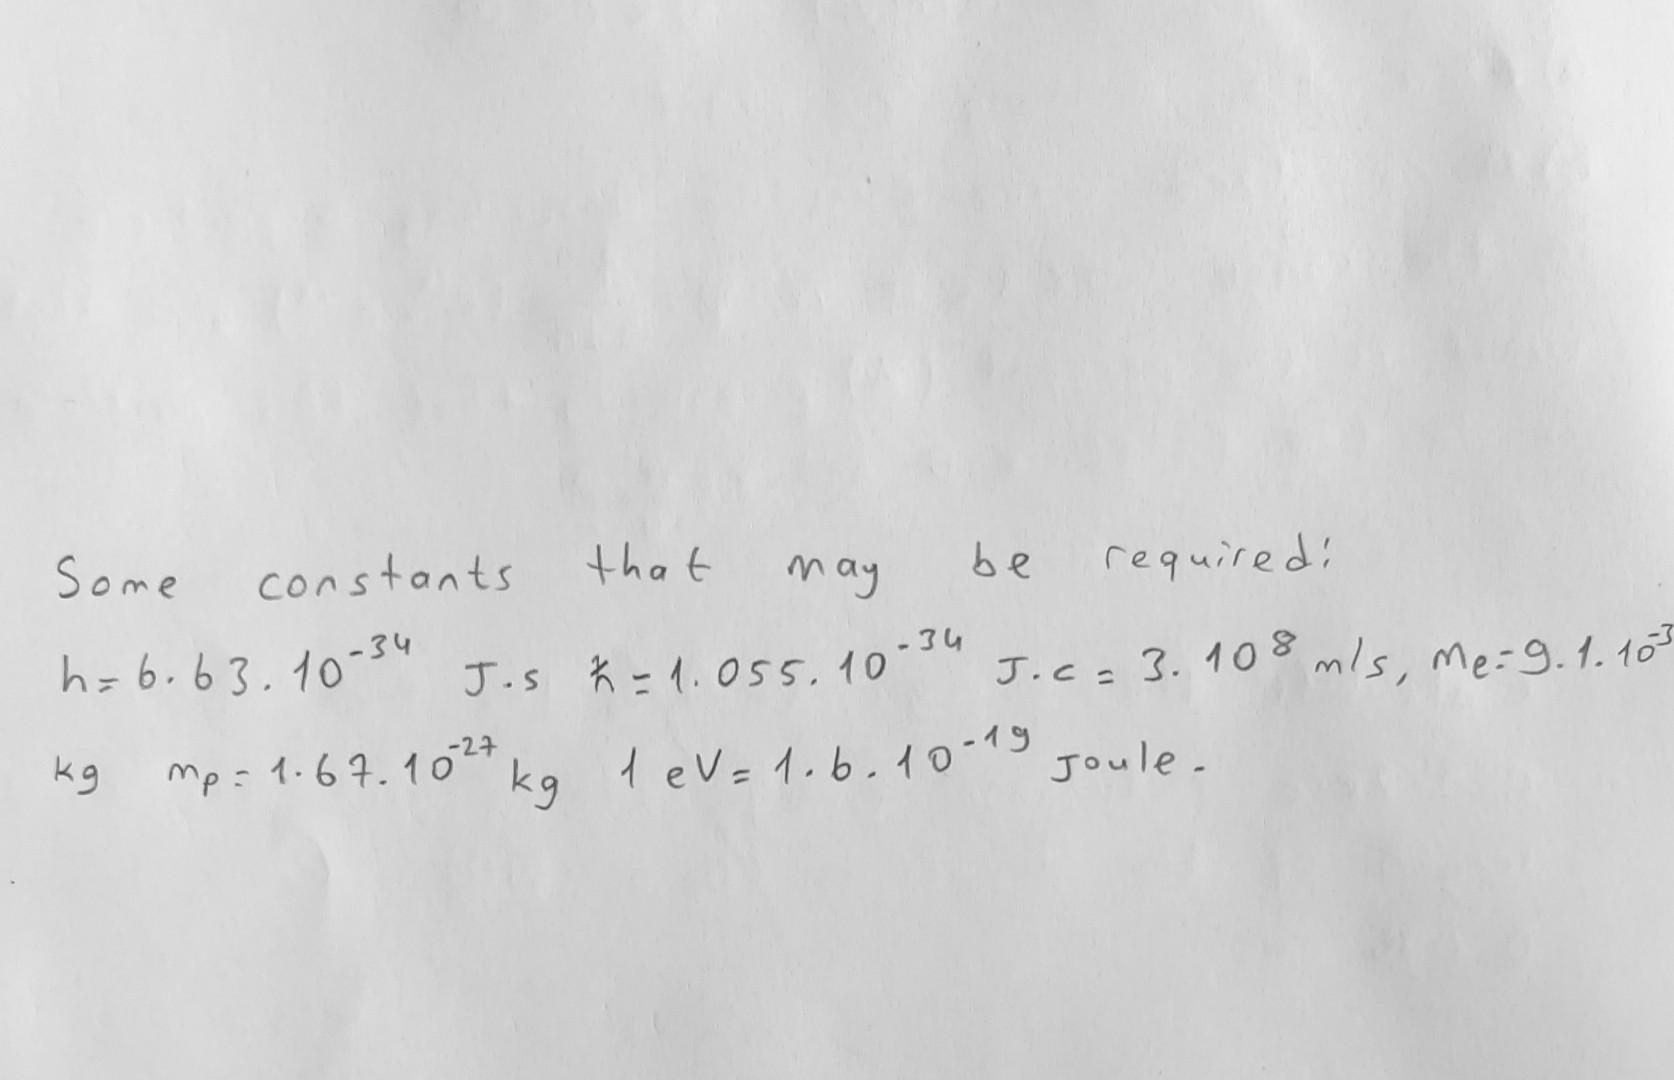 Some constants that may be required:
h=6.63.10⁻³⁴ J.s ħ=1.055.10⁻³⁴ J.c = 3.10⁸ m/s, me=9.1.10⁻³
kg mp=1.67.10⁻²⁷ kg 1 eV=1.6.10⁻¹⁹ Joule.